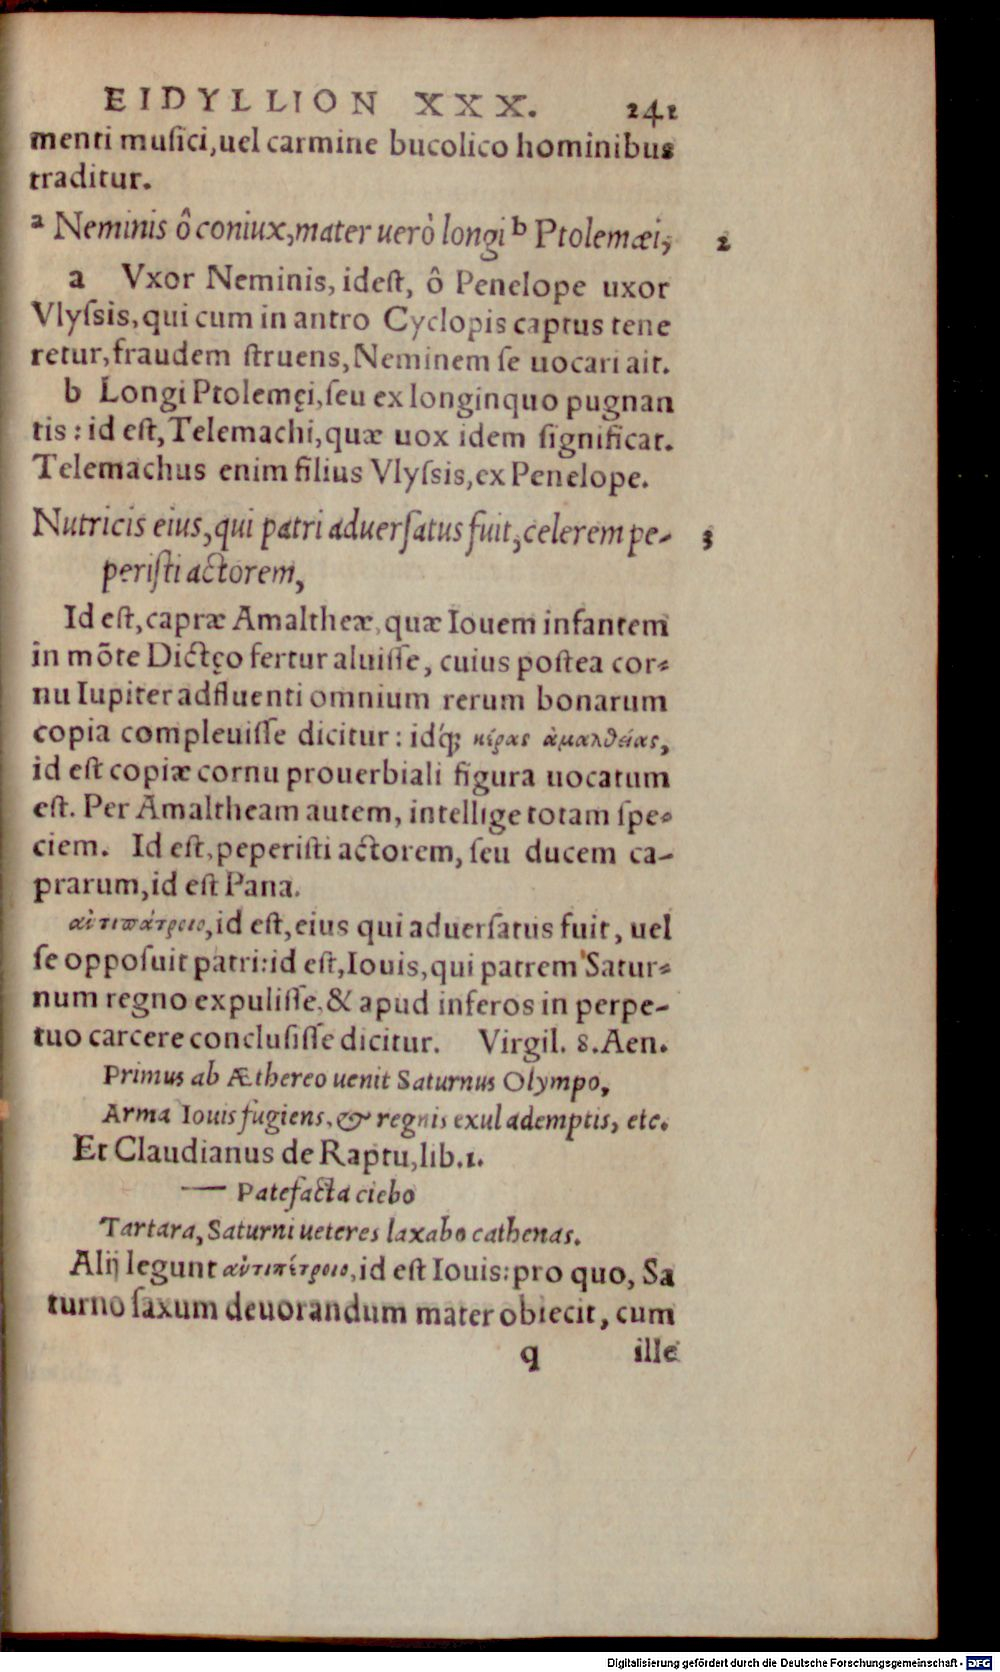 EIDYLLION XXX. 241
menti musici, uel carmine bucolico hominibus
traditur.
a Neminis ô coniux, mater uerò longi b Ptolemæi, 2
a Vxor Neminis, idest, ô Penelope uxor
Vlyſsis, qui cum in antro Cyclopis captus tene
retur, fraudem ſtruens, Neminem ſe uocari ait.
b Longi Ptolemęi, ſeu ex longinquo pugnan
tis: id eſt, Telemachi, quæ uox idem ſignificat.
Telemachus enim filius Vlyſsis, ex Penelope.
Nutricis eius, qui patri aduerſatus fuit, celerem pe- 3
periſti actorem,
Id eſt, capræ Amaltheæ, quæ Iouem infantem
in mõte Dictęo fertur aluiſſe, cuius poſtea cor-
nu Iupiter adfluenti omnium rerum bonarum
copia compleuiſſe dicitur: idq́; κέρας ἀμαλθείας,
id eſt copiæ cornu prouerbiali figura uocatum
eſt. Per Amaltheam autem, intellige totam ſpe-
ciem. Id eſt, peperiſti actorem, ſeu ducem ca-
prarum, id eſt Pana.
ἀντιπάτροιο, id eſt, eius qui aduerſatus fuit, uel
ſe oppoſuit patri: id eſt, Iouis, qui patrem Satur-
num regno expuliſſe, & apud inferos in perpe-
tuo carcere concluſiſſe dicitur. Virgil. 8. Aen.
Primus ab Æthereo uenit Saturnus Olympo,
Arma Iouis fugiens, & regnis exul ademptis, etc.
Et Claudianus de Raptu, lib. 1.
— Patefacta ciebo
Tartara, Saturni ueteres laxabo cathenas.
Alij legunt ἀντιπέτροιο, id eſt Iouis: pro quo, Sa
turno ſaxum deuorandum mater obiecit, cum
q ille
Digitalisierung gefördert durch die Deutsche Forschungsgemeinschaft - DFG